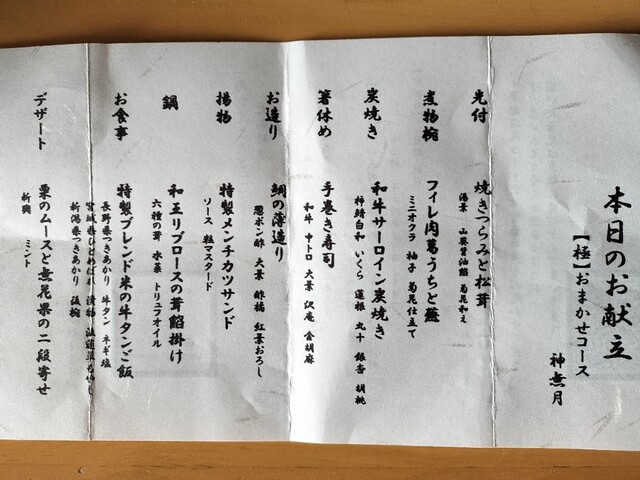 本日のお献立
【極】おまかせコース
神無月
先付
焼きつらみと松茸
湯葉 山葵醤油餡 菊花和え
煮物椀
フィレ肉葛うちと蕪
ミニオクラ 柚子 菊花仕立て
炭焼き
和牛サーロイン炭焼き
柿錆白和 いくら 蓮根 丸十 銀杏 胡桃
箸休め
手巻き寿司
和牛 中トロ 大葉 沢庵 金胡麻
お造り
鯛の薄造り
葱ポン酢 大葉 酢橘 紅葉おろし
揚物
特製メンチカツサンド
ソース 粒マスタード
鍋
和王リブロースの茸餡掛け
六種の茸 水菜 トリュフオイル
お食事
特製ブレンド米の牛タンご飯
長野県つきあかり 牛タン ネギ塩
宮城県ひとめぼれ 漬物
新潟県つきあかり 止椀
デザート
栗のムースと無花果の二段寄せ
新興 ミント